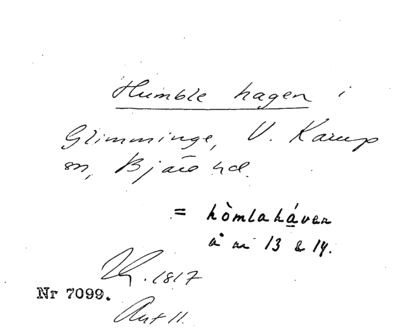 Humble hagen i
Glimminge, V. Karup
sn, Bjäre hd.
= hòmlaháven
å nr 13 & 14.
1817
Nr 7099.
Akt 11.